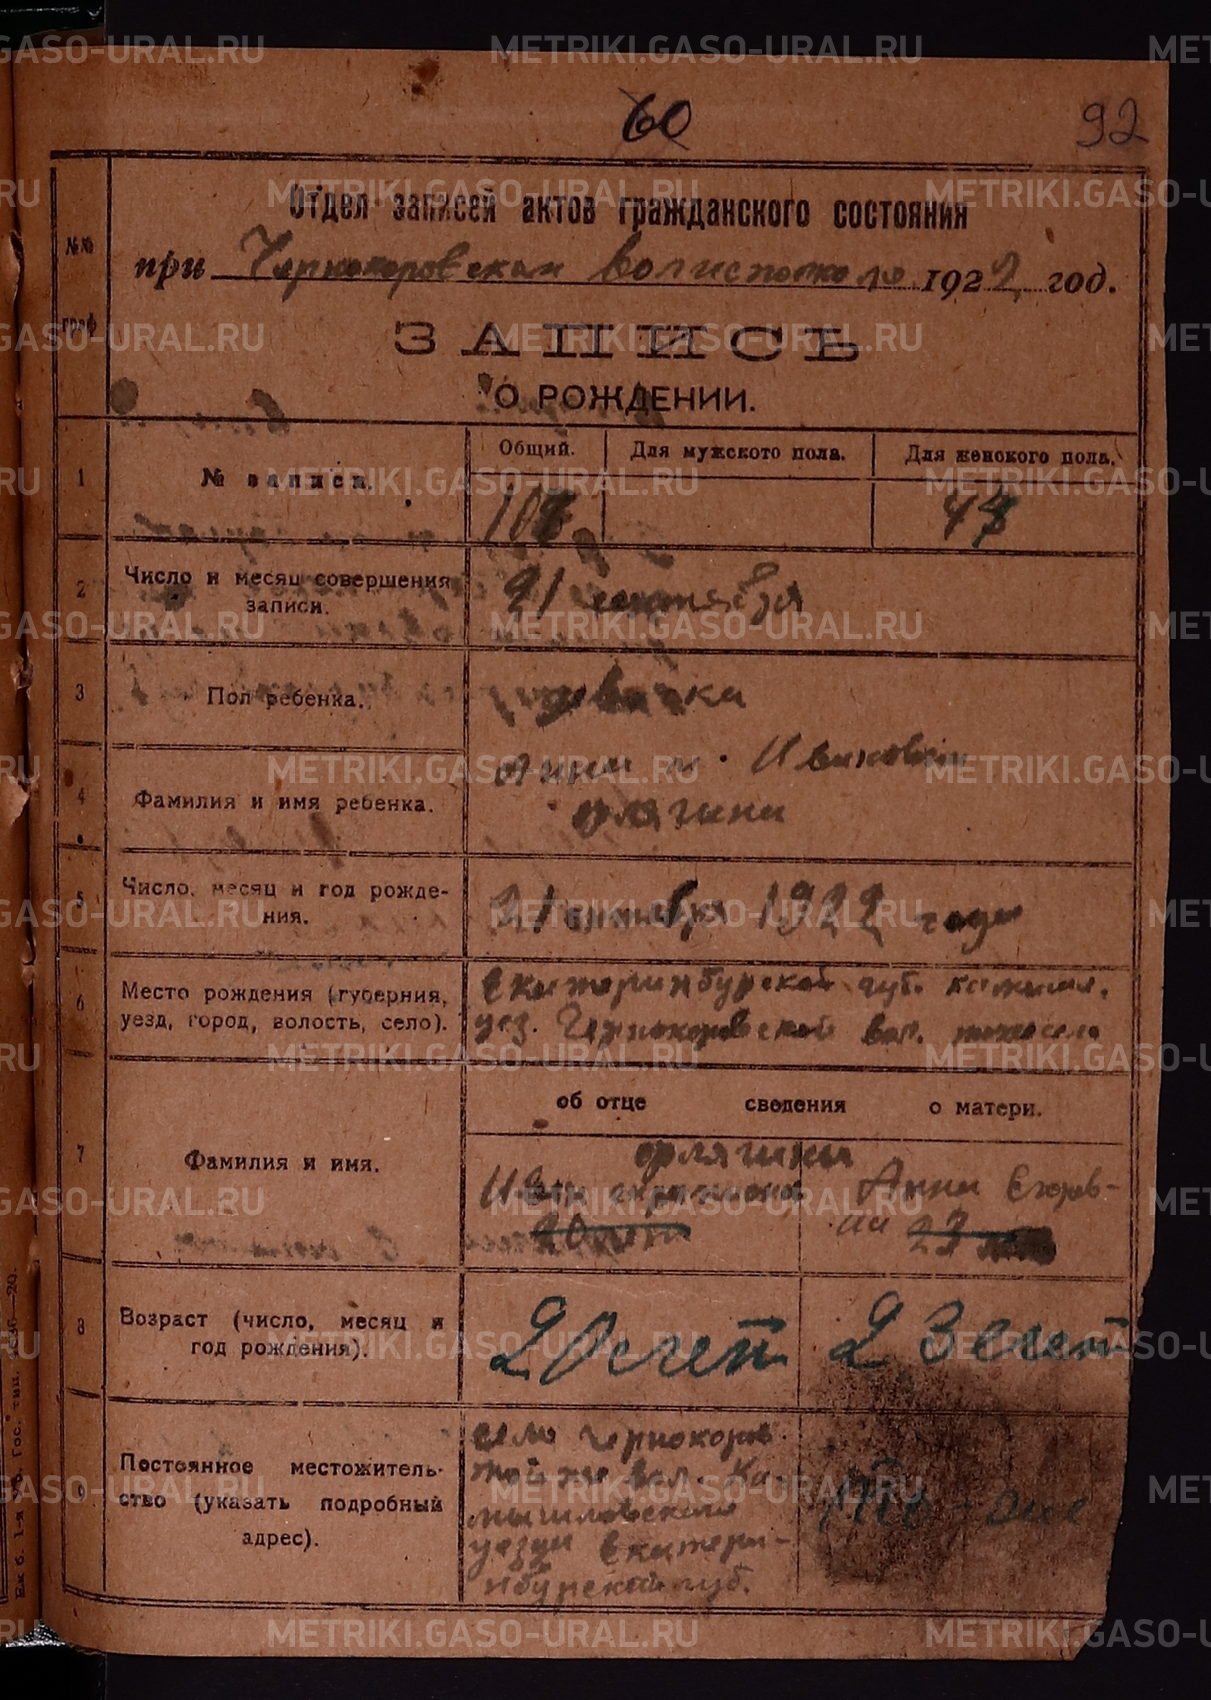 60
92
№№ граф
Отдел записей актов гражданского состояния
при Чернокоровском волисполкоме 1922 год.
ЗАПИСЬ
О РОЖДЕНИИ.
1
№ записи.
Общий.
Для мужского пола.
Для женского пола.
2
Число и месяц совершения
записи.
21 сентября
3
Пол ребенка.
девочка
4
Фамилия и имя ребенка.
Анна Ивановна
5
Число, месяц и год рожде-
ния.
21 1922 года
6
Место рождения (губерния,
уезд, город, волость, село).
Екатеринбургской губ. Камышл.
уез. Чернокоровской вол. того же села
7
Фамилия и имя.
об отце сведения о матери.
Иван Анна Егоров-
на
20 лет
23
8
Возраст (число, месяц и
год рождения).
20 лет
23 лет
9
Постоянное местожитель-
ство (указать подробный
адрес).
село Чернокоров
той же вол. Ка-
мышловского
уезда Екатери-
нбургской губ.
То-же
METRIKI.GASO-URAL.RU